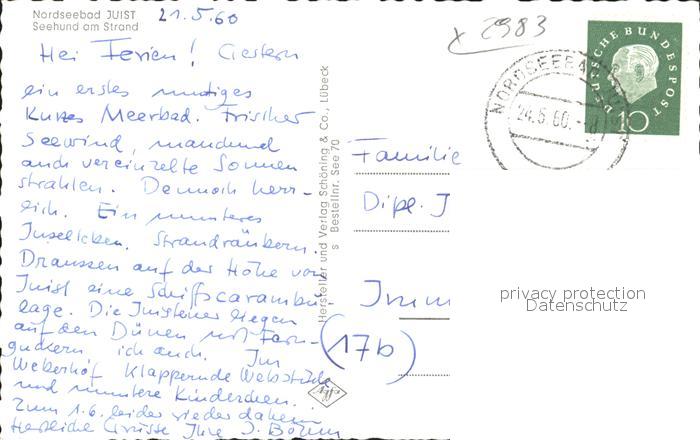 Nordseebad JUIST
Seehund am Strand
21.5.60
Hei Ferien! Gestern
ein erstes mutiges
kurzes Meerbad. Frischer
Seewind, manchmal
auch vereinzelte Sonnen
strahlen. Dennoch herr-
lich. Ein munteres
Inselleben. Strandräubern.
Draussen auf der Höhe von
Juist eine Schiffscarambo-
lage. Die Juistener liegen
auf den Dünen mit Fern-
guckern, ich auch. Im
Weberhof klappernde Webstühle
und muntere Kinderchen.
Zum 1.6. leider wieder daheim
Herzliche Grüsse Ihre J. Böhm
Hersteller und Verlag Schöning & Co., Lübeck
s Bestellnr. See 70
x 2983
NORDSEEBAD
24.5.60.
DEUTSCHE BUNDESPOST
10
Familie
Dipl. J
Imm
(17b)
privacy protection
Datenschutz